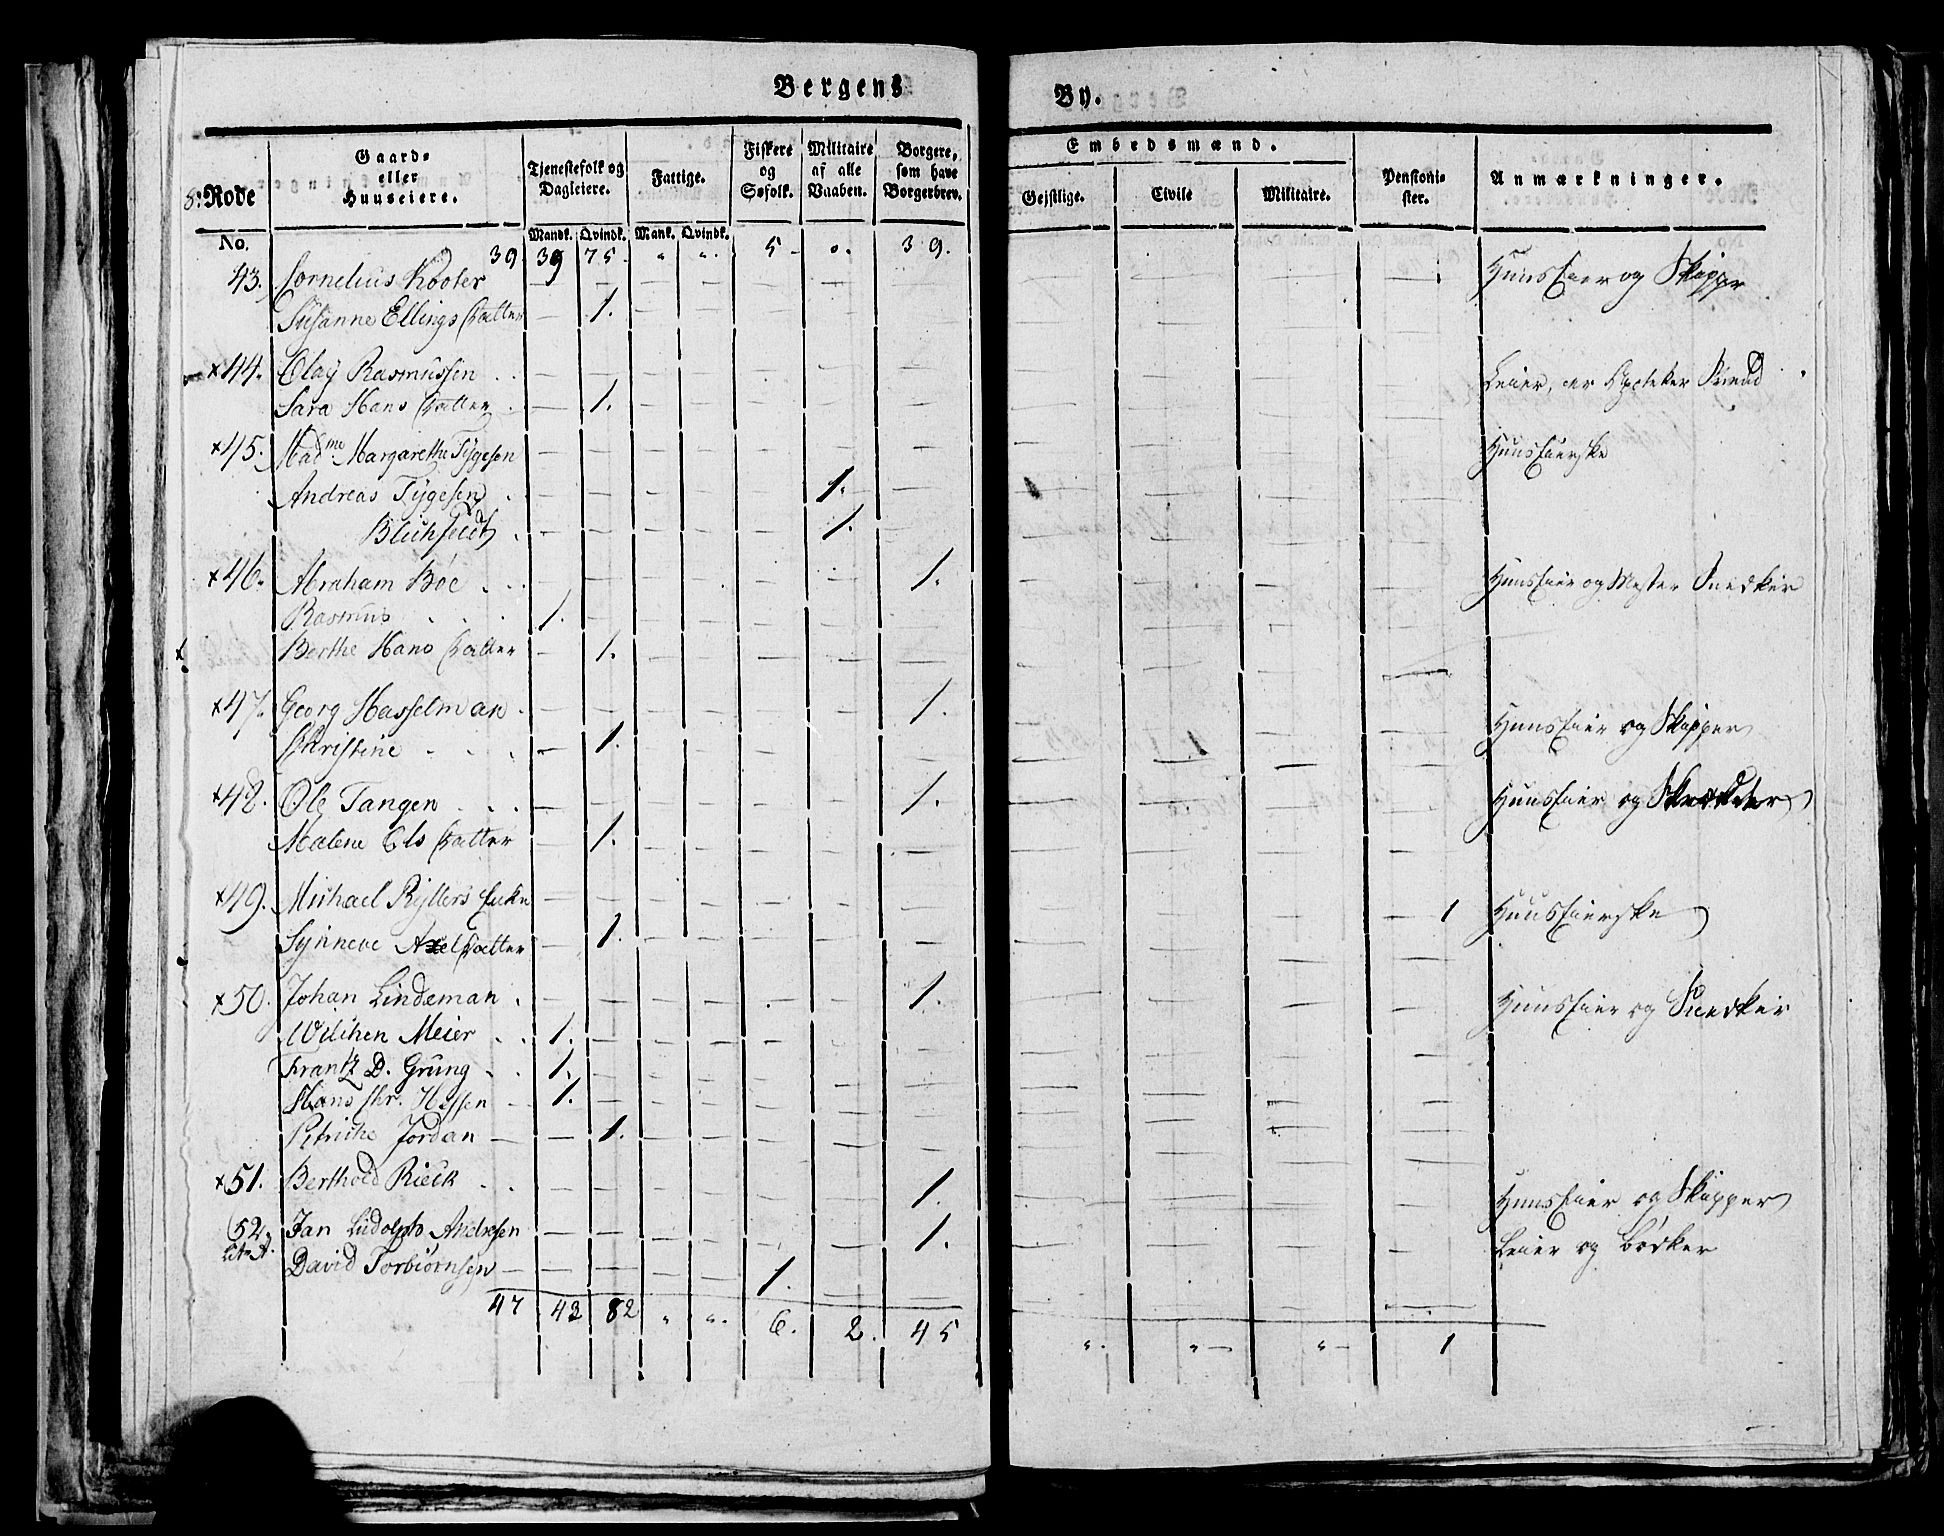 Bergens By.
8. Rode No. | Gaard- eller Huuseiere. | Tjenestefolk og Dagleiere. Mandk. Qvindk. | Fattige. Mank. Qvindk. | Fiskere og Søfolk. | Militaire af alle Vaaben. | Borgere, som have Borgerbrev. | Embedsmænd. Gejstlige. Civile Militaire. | Pensionister. | Anmærkninger.
39. 39 75. " ". 5 - 0. 39.
43. Cornelius Kooter — — — — — — — Huuseier og Skipper
Susanne Ellings Datter — 1. — — — — —
x44. Olay Rasmussen . . — — — — — — — Leier, er Apoteker Svend
Sara Hans Datter . — 1. — — — — —
x45. Madme Margarethe Tygesen — — — — — — — Huuseierske
Andreas Tygesen . — — — — — 1. —
Blichfeldt . — — — — — 1. —
x46. Abraham Böe . . . — — — — — — 1. Huuseier og Mester Snedker
Rasmus . . . 1. — — — — — —
Berthe Hans Datter — 1. — — — — —
x47. Georg Hasselman . — — — — — — 1. Huuseier og Skipper
Christine . . . — 1. — — — — —
x48. Ole Tangen . . . — — — — — — 1. Huuseier og
Malene Ols Datter — 1. — — — — —
x49. Michael Ryllers Enke — — — — — — — — 1 Huuseierske
Synneve Axel Datter — 1. — — — — —
x50. Johan Lindeman . — — — — — — 1. Huuseier og Snedker
Wilchen Meier . . 1. — — — — — —
Frantz D. Grung . . 1. — — — — — —
Hans Chr. Hessen — 1. — — — — — —
Petriche Jordan — — 1. — — — — —
x51. Berthold Rieck . . — — — — — — 1. Huuseier og Skipper
52. Litr A. Jan Ludolpho Andresen — — — — — — 1. Leier og Bødker
David Torbiörnsen — — — — — 1. — —
47 43 82 " ". 6. 2. 45 ". " — " — 1